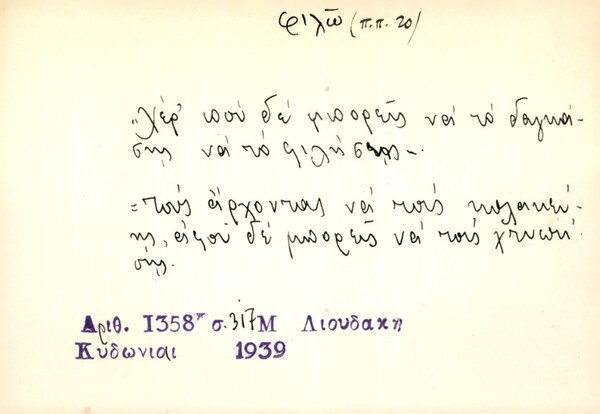 φιλῶ (π.π. 20)
„Χέρ' ποὺ δὲ μπορεῖς νὰ τὸ δαγκά-
σῃς νὰ τὸ φιλήσῃς –.
= τοὺς ἄρχοντας νὰ τοὺς κολακεύ-
ῃς, ἀφοῦ δὲ μπορεῖς νὰ τοὺς χτυπή-
σῃς.
Αριθ. 1358 σ. 317 Μ Λιουδακη
Κυδωνιαι 1939